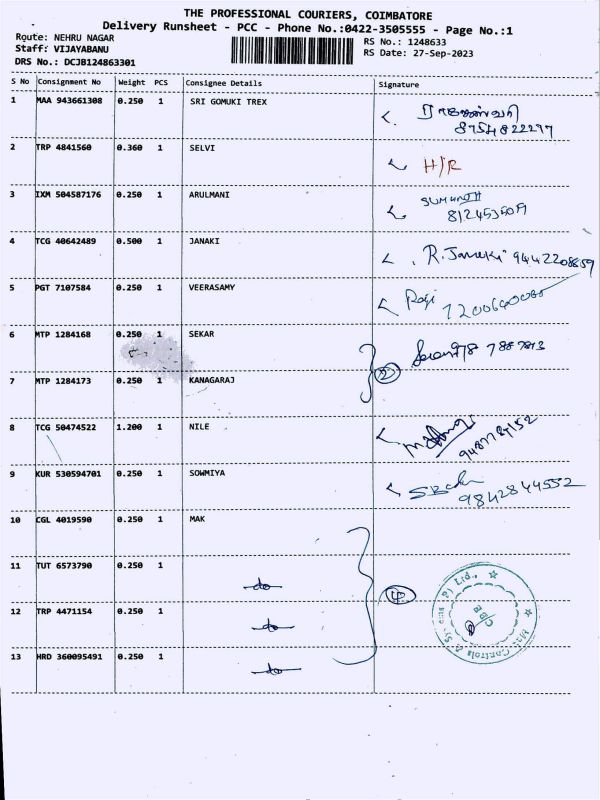 THE PROFESSIONAL COURIERS, COIMBATORE
Delivery Runsheet - PCC - Phone No.:0422-3505555 - Page No.:1
Route: NEHRU NAGAR
RS No.: 1248633
Staff: VIJAYABANU
RS Date: 27-Sep-2023
DRS No.: DCJB124863301
S No Consignment No Weight PCS Consignee Details Signature
1 MAA 943661308 0.250 1 SRI GOMUKI TREX
2 TRP 4841560 0.360 1 SELVI H/R
3 IXM 504587176 0.250 1 ARULMANI
4 TCG 40642489 0.500 1 JANAKI R. Janaki 9442208859
5 PGT 7107584 0.250 1 VEERASAMY
6 MTP 1284168 0.250 1 SEKAR
7 MTP 1284173 0.250 1 KANAGARAJ 2
8 TCG 50474522 1.200 1 NILE
9 KUR 530594701 0.250 1 SOWMIYA 9842844552
10 CGL 4019590 0.250 1 MAK
11 TUT 6573790 0.250 1 do 4
12 TRP 4471154 0.250 1 do
13 HRD 360095491 0.250 1 do
CBE